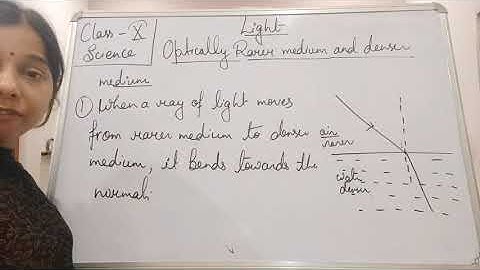 Class - X
Science
Light
Optically Rarer medium and denser
medium
① When a ray of light moves
from rarer medium to denser
medium, it bends towards the
normal.
air
rarer
water
denser